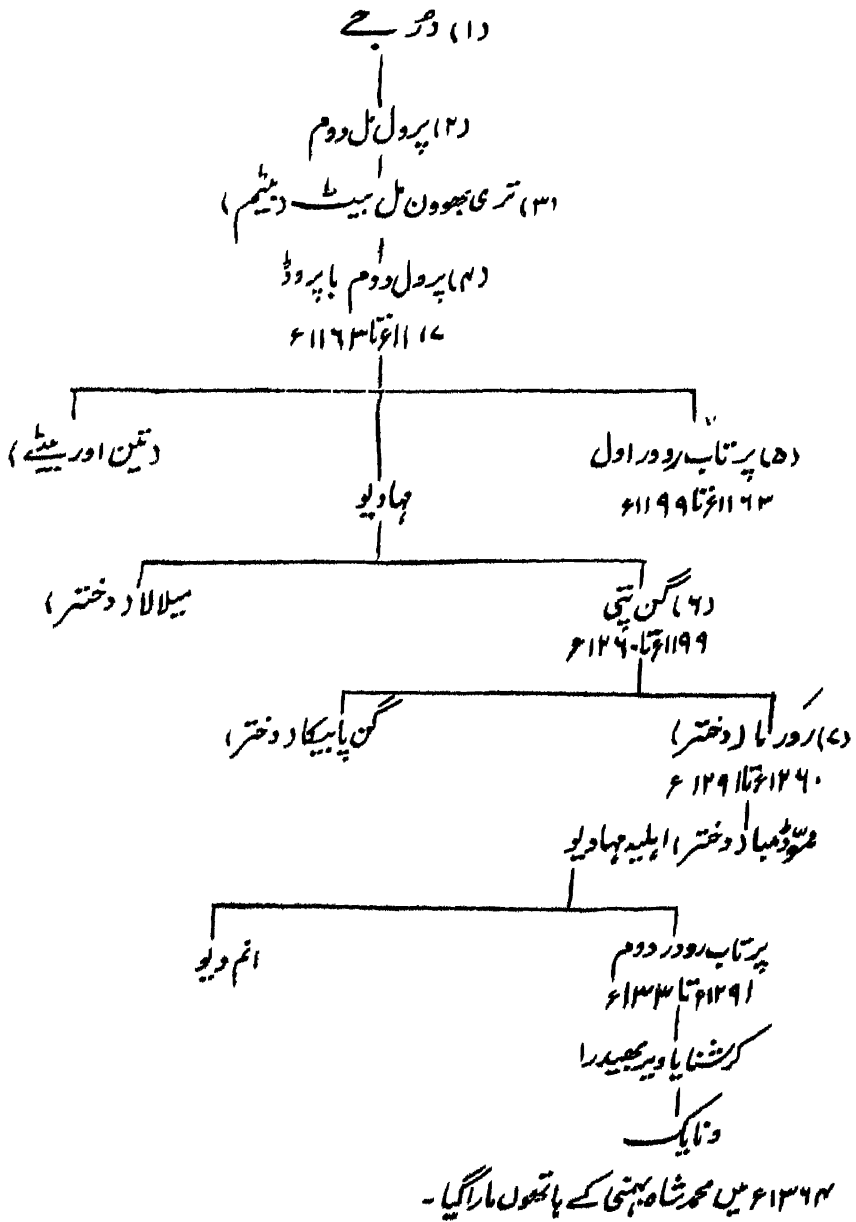 (۱) دُرجے
(۲) پرول مل دوم
(۳) تری بھوون مل بیٹ (بیٹیم)
(۴) پرول دوم یا پروڈ
۱۱۱۷ء تا ۱۱۶۳ء
(۵) پرتاب رودر اول
۱۱۶۳ء تا ۱۱۹۹ء
(تین اور بیٹے)
مہادیو
(۶) گن پتی
۱۱۹۹ء تا ۱۲۶۰ء
میلالا (دختر)
(۷) رَور ما (دختر)
۱۲۶۰ء تا ۱۲۹۱ء
گن پابیکا (دختر)
(دختر) اہلیہ مہادیو
پرتاب رودر دوم
۱۲۹۱ء تا ۱۳۳۳ء
انم دیو
کرشنا یا ویر بھیدرا
ونایک
۱۳۶۴ء میں محمد شاہ بہمنی کے ہاتھوں مارا گیا۔